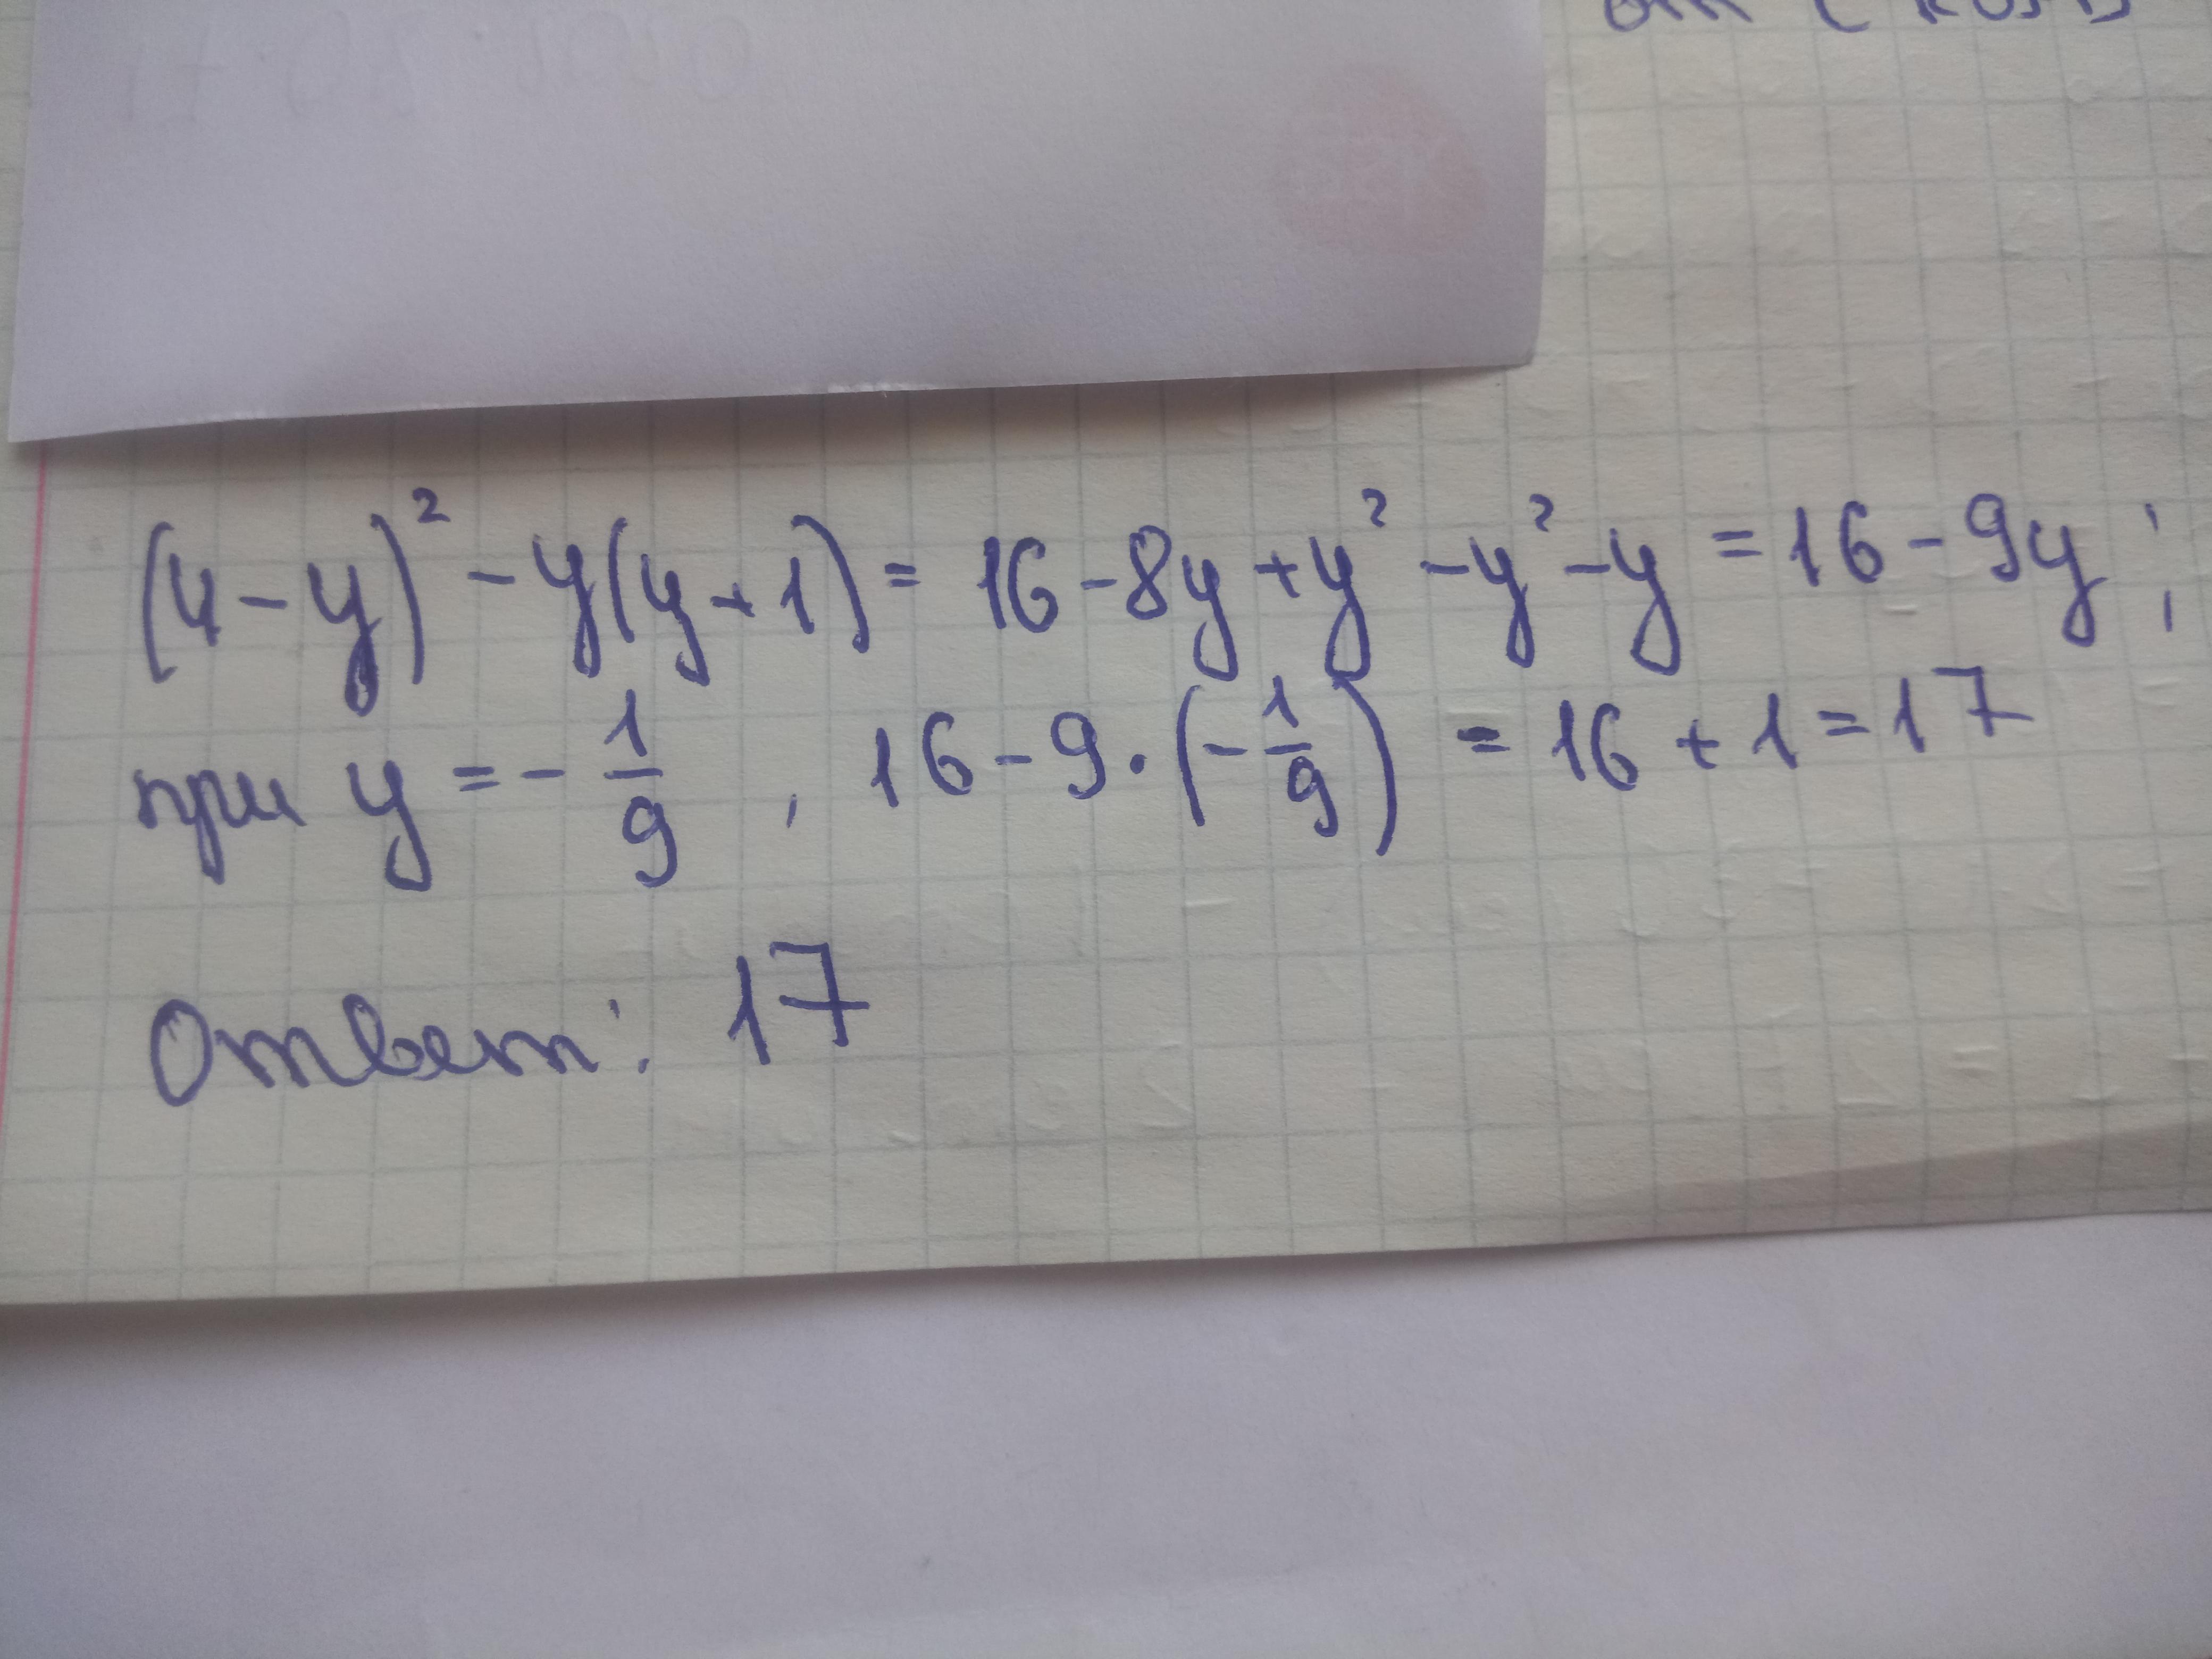 (4-y)² - y(y+1) = 16 - 8y + y² - y² - y = 16 - 9y;
при y = - 1/9 , 16 - 9 · (- 1/9) = 16 + 1 = 17
Ответ: 17